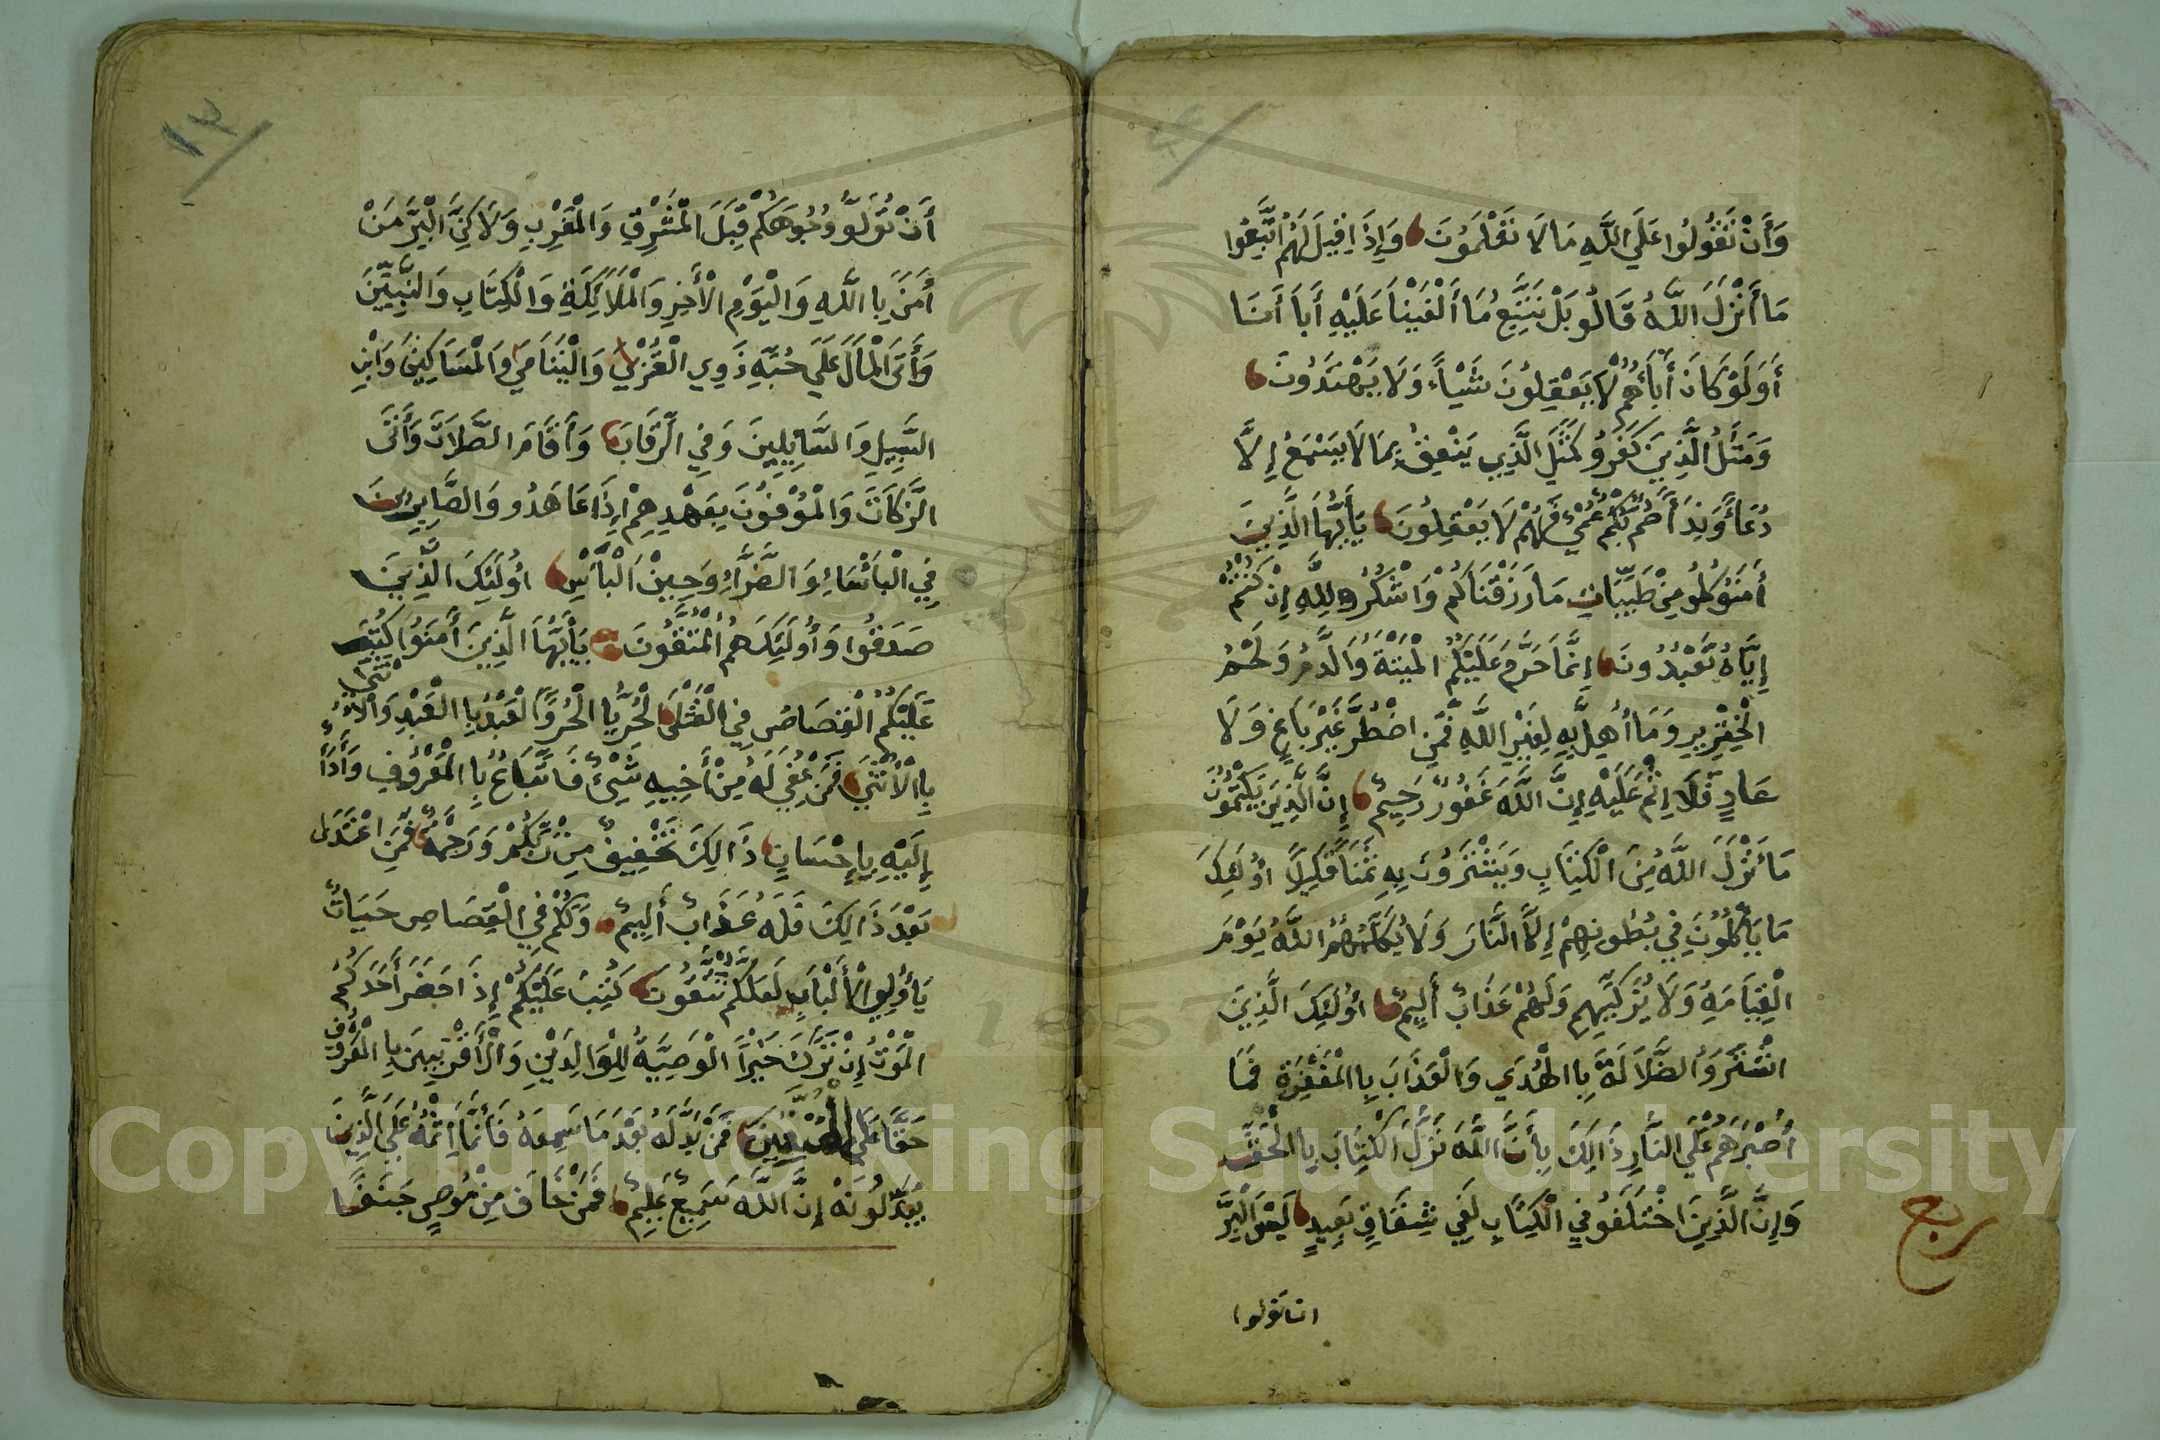 وَأَنْ تَقُولُوا عَلَي اللَّهِ مَا لَا تَعْلَمُونَ وَإِذَا قِيلَ لَهُمْ اتَّبِعُوا
مَا أَنْزَلَ اللَّهُ قَالُو بَلْ نَتَّبِعُ مَا أَلْفَيْنَا عَلَيْهِ أَبَاءَنَا
أَوَلَوْ كَانَ أَبَاءُهُمْ لَا يَعْقِلُونَ شَيْاءً وَلَا يَهْتَدُونَ
وَمَثَلُ الَّذِينَ كَفَرُو كَمَثَلِ الَّذِي يَنْعِقُ بِمَا لَا يَسْمَعُ إِلَّا
دُعَاءً وَنِدَاءً صُمٌّ بُكْمٌ عُمْيٌ فَهُمْ لَا يَعْقِلُونَ يَأَيُّهَا الَّذِينَ
أَمَنُو كُلُو مِنْ طَيِّبَاتِ مَا رَزَقْنَاكُمْ وَاشْكُرُو لِلَّهِ إِنْ كُنْتُمْ
إِيَّاهُ تَعْبُدُونَ إِنَّمَا حَرَّمَ عَلَيْكُمُ الْمَيْتَةَ وَالدَّمَ وَلَحْمَ
الْخِنْزِيرِ وَمَا أُهِلَّ بِهِ لِغَيْرِ اللَّهِ فَمَنِ اضْطُرَّ غَيْرَ بَاغٍ وَلَا
عَادٍ فَلَا إِثْمَ عَلَيْهِ إِنَّ اللَّهَ غَفُورٌ رَحِيمٌ إِنَّ الَّذِينَ يَكْتُمُونَ
مَا أَنْزَلَ اللَّهُ مِنَ الْكِتَابِ وَيَشْتَرُونَ بِهِ ثَمَنًا قَلِيلًا أُولَئِكَ
مَا يَأْكُلُونَ فِي بُطُونِهِمْ إِلَّا النَّارَ وَلَا يُكَلِّمُهُمُ اللَّهُ يَوْمَ
الْقِيَامَةِ وَلَا يُزَكِّيهِم وَلَهُمْ عَذَابٌ أَلِيمٌ أُولَئِكَ الَّذِينَ
اشْتَرَوُ الضَّلَالَةَ بِاالْهُدَي وَالْعَذَابَ بِاالْمَغْفِرَةِ فَمَا
أَصْبَرَهُمْ عَلَي النَّارِ ذَالِكَ بِأَنَّ اللَّهَ نَزَّلَ الْكِتَابَ بِاالْحَقِّ
وَإِنَّ الَّذِينَ اخْتَلَفُو فِي الْكِتَابِ لَفِي شِقَاقٍ بَعِيدٍ لَيْسَ الْبِرَّ
ربع
ان تولوا
١٣
أَنْ تُوَلُّو وُجُوهَكُمْ قِبَلَ الْمَشْرِقِ وَالْمَغْرِبِ وَلَاكِنَّ الْبِرَّ مَنْ
أَمَنَ بِاللَّهِ وَالْيَوْمِ الْأَخِرِ وَالْمَلَائِكَةِ وَالْكِتَابِ وَالنَّبِيِّينَ
وَأَتَى الْمَالَ عَلَي حُبِّهِ ذَوِي الْقُرْبَي وَالْيَتَامَي وَالْمَسَاكِينَ وَابْنِ
السَّبِيلِ وَالسَّايِلِينَ وَفِي الرِّقَابِ وَأَقَامَ الصَّلَاتَ وَأَتَى
الزَّكَاتَ وَالْمُوفُونَ بِعَهْدِهِمْ إِذَا عَاهَدُو وَالصَّابِرِينَ
فِي الْبَأْسَاءِ وَالضَّرَّاءِ وَحِينَ الْبَأْسِ أُولَئِكَ الَّذِينَ
صَدَقُوا وَأُولَئِكَ هُمُ الْمُتَّقُونَ يَأَيُّهَا الَّذِينَ أَمَنُوا كُتِبَ
عَلَيْكُمُ الْقِصَاصُ فِي الْقَتْلَى الْحُرُّ بِاالْحُرِّ وَالْعَبْدُ بِاالْعَبْدِ وَالْأُنْثَي
بِاالْأُنْثَي فَمَنْ عُفِيَ لَهُ مِنْ أَخِيهِ شَيْءٌ فَاتِّبَاعٌ بِاالْمَعْرُوفِ وَأَدَاءٌ
إِلَيْهِ بِإِحْسَانٍ ذَالِكَ تَخْفِيفٌ مِنْ رَبِّكُمْ وَرَحْمَةٌ فَمَنِ اعْتَدَى
بَعْدَ ذَالِكَ فَلَهُ عَذَابٌ أَلِيمٌ وَلَكُمْ فِي الْقِصَاصِ حَيَاتٌ
يَأُولِي الْأَلْبَابِ لَعَلَّكُمْ تَتَّقُونَ كُتِبَ عَلَيْكُمْ إِذَا حَضَرَ أَحَدَكُمُ
الْمَوْتُ إِنْ تَرَكَ خَيْرًا الْوَصِيَّةُ لِلْوَالِدَيْنِ وَالْأَقْرَبِينَ بِاالْمَعْرُوفِ
حَقًّا عَلَي الْمُتَّقِينَ فَمَنْ بَدَّلَهُ بَعْدَ مَا سَمِعَهُ فَإِنَّمَا إِثْمُهُ عَلَي الَّذِينَ
يُبَدِّلُونَهُ إِنَّ اللَّهَ سَمِيعٌ عَلِيمٌ فَمَنْ خَافَ مِنْ مُوصٍ جَنَفًا
Copyright © King Saud University
1957